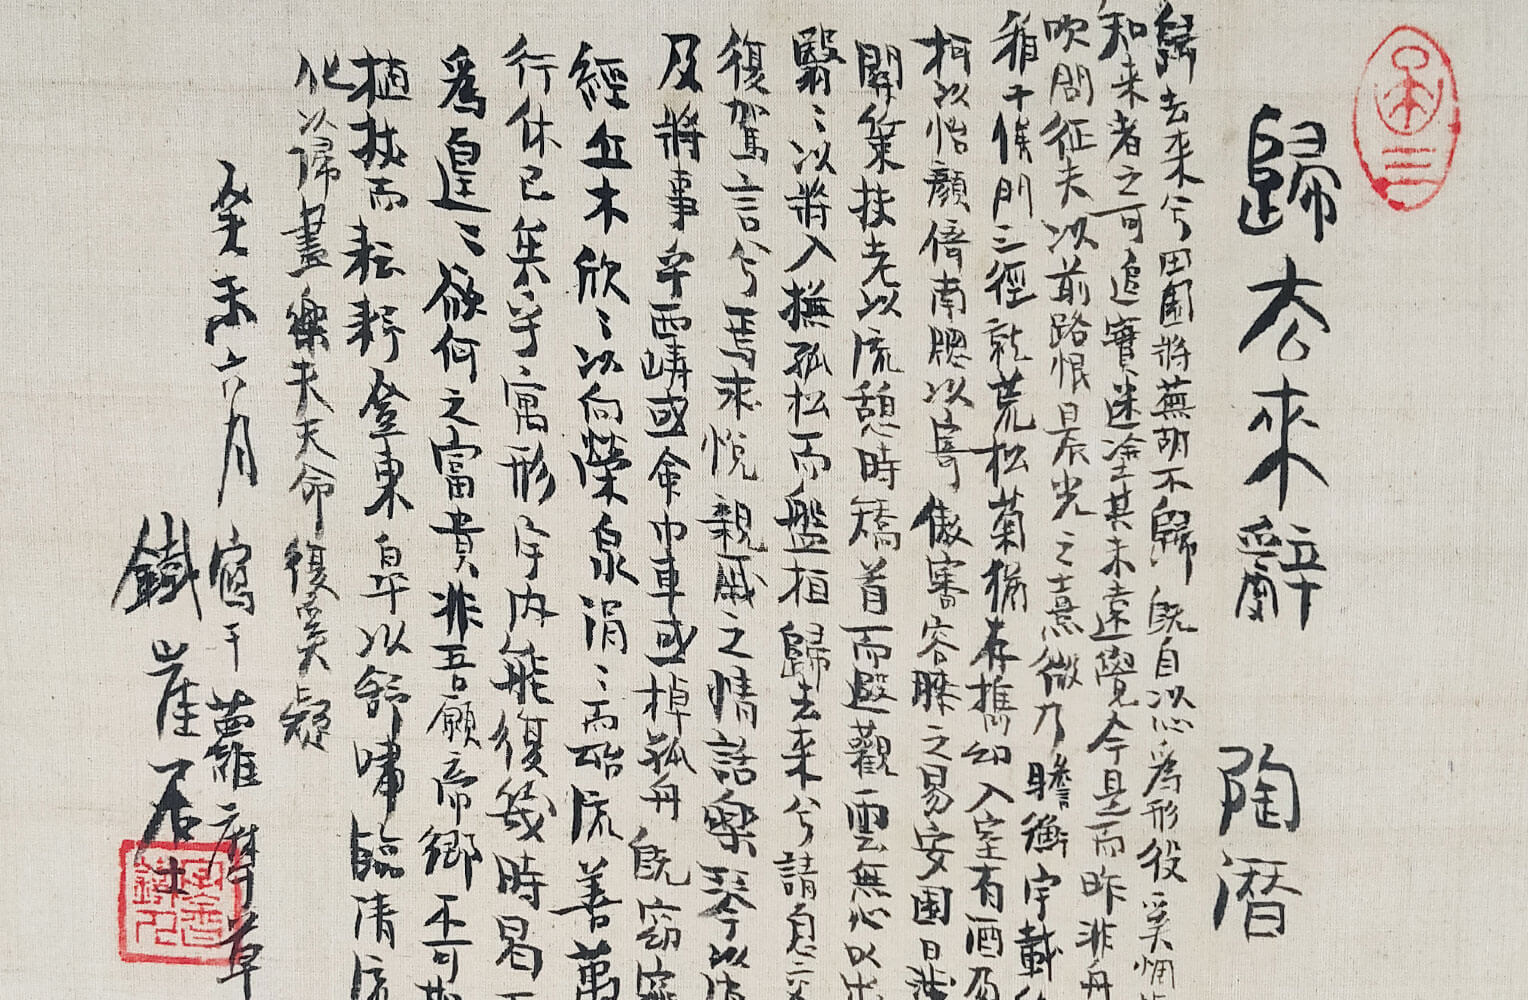 歸去來辭 陶潛
歸去来兮田園將蕪胡不歸既自以心為形役奚惆
知来者之可追實迷塗其未遠覺今是而昨非舟
吹問征夫以前路恨晨光之熹微乃瞻衡宇載
稚子候門三徑就荒松菊猶存攜幼入室有酒盈
柯以怡顏倚南牕以寄傲審容膝之易安園日涉
關策扶老以流憩時矯首而遐觀雲無心以出
翳〻以將入撫孤松而盤桓歸去来兮請息交
復駕言兮焉求悅親戚之情話樂琴書以消
及將事乎西疇或命巾車或棹孤舟既窈窕
經丘木欣〻以向榮泉涓〻而始流善萬
行休已矣乎寓形宇内能復幾時曷不
為遑〻欲何之富貴非吾願帝鄉不可期
植杖而耘耔登東皋以舒嘯臨清流
化以歸盡樂夫天命復奚疑
癸未六月寫于蘿摩草
鐵崖居士